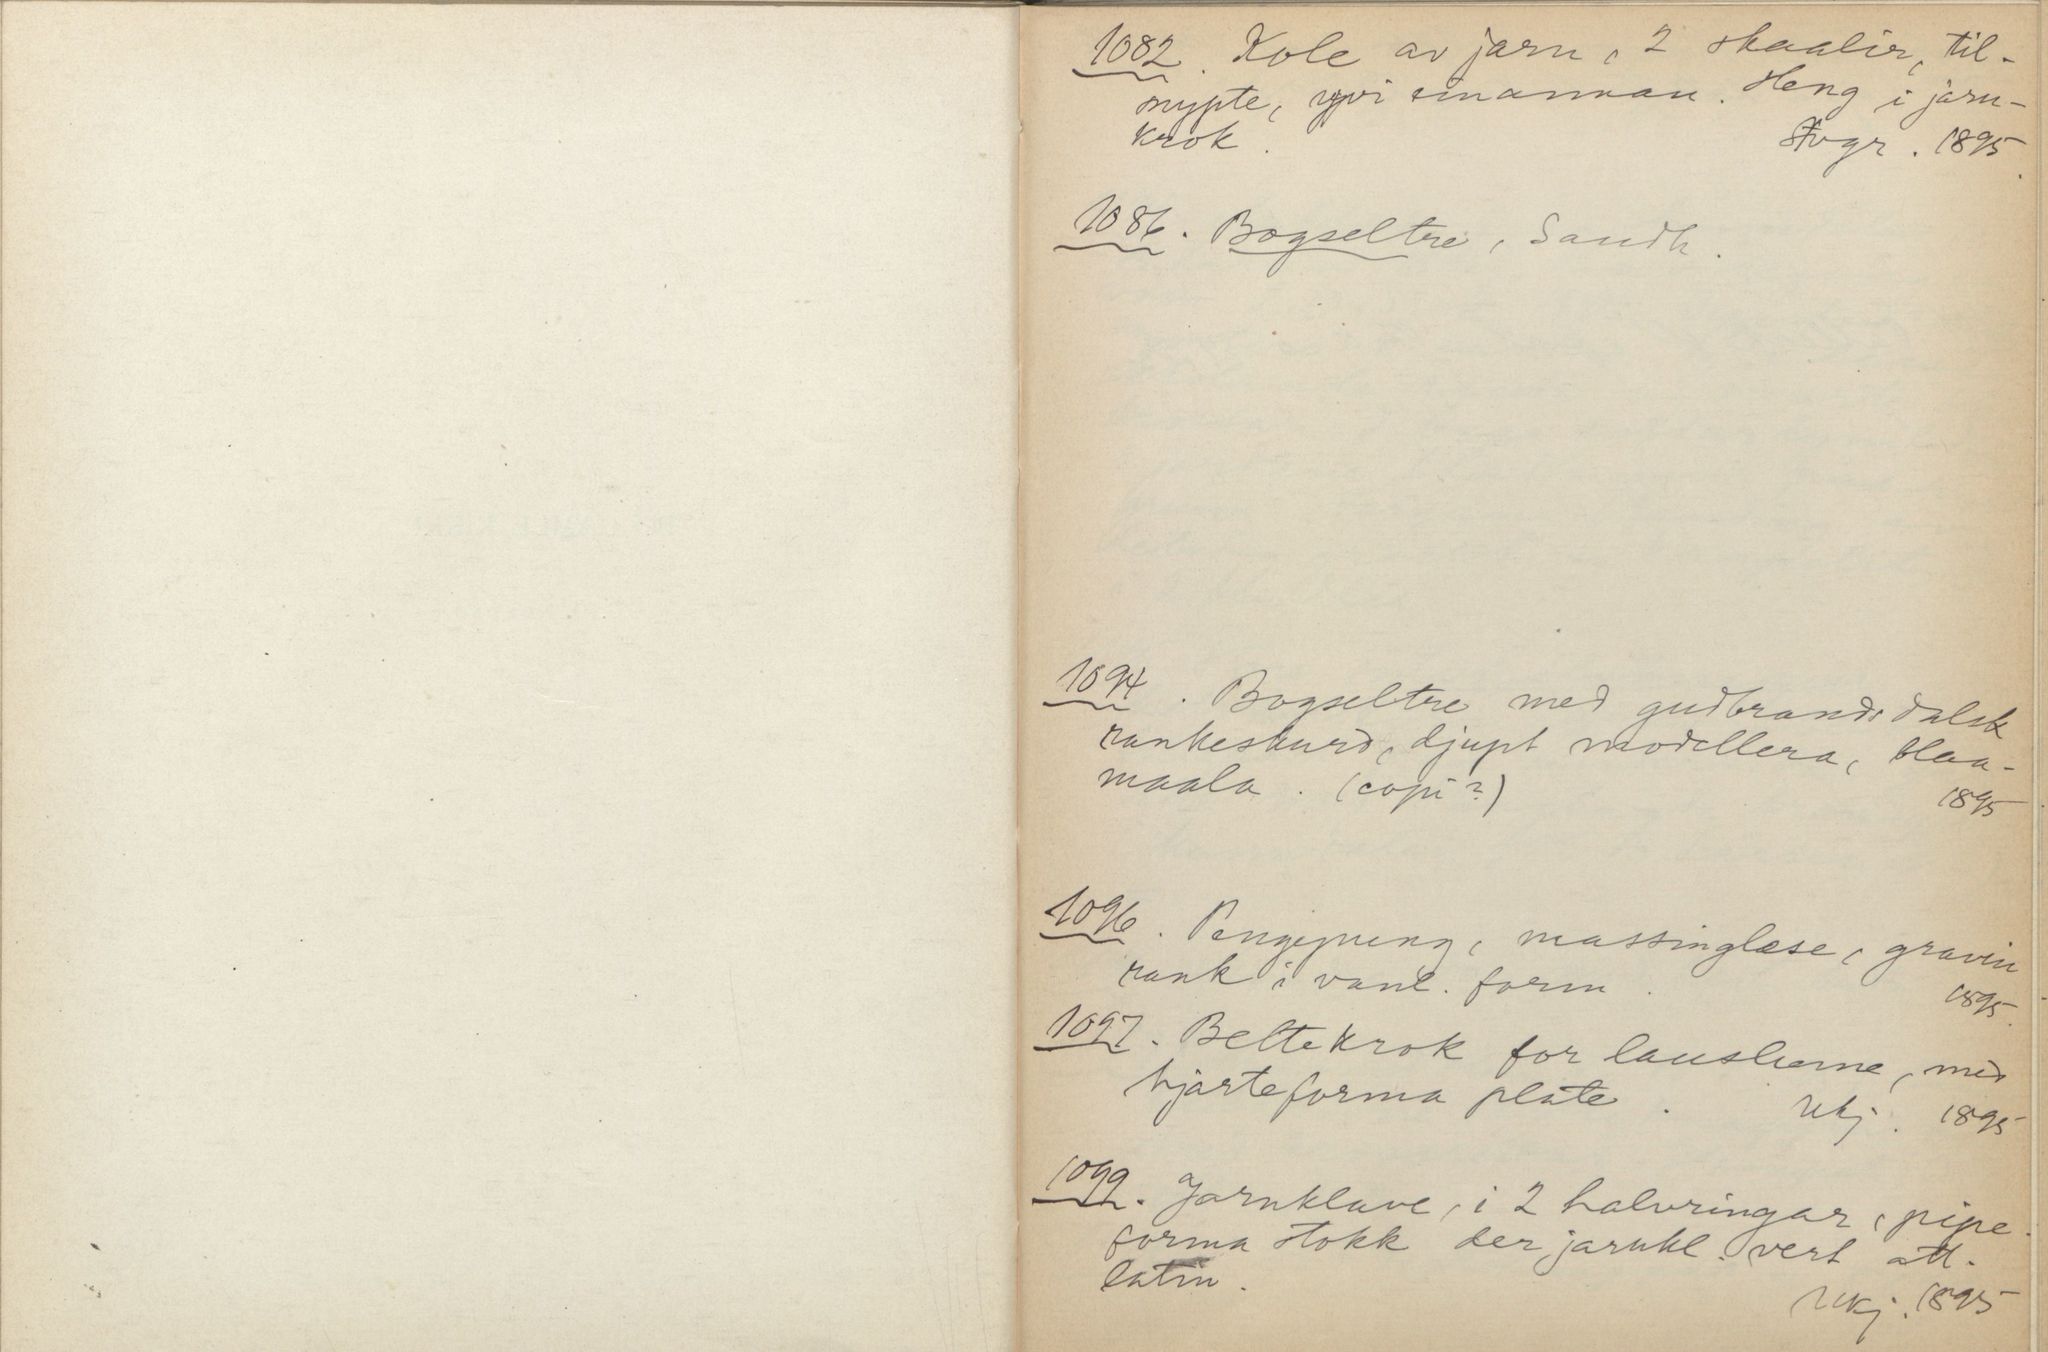 1082. Kole av jarn, 2 skaalir, til-
snypte, yvi einannan. Heng i jarn-
krok. 1895.
1086. Bogseltre, Sandh.
1094. Bogseltre med gudbrandsdalsk
rankeskurd, djupt modellera, blaa-
maala. (copi?) 1895
1096. Pengepung, massinglæse, gravin
rank i vanl. form. 1895.
1097. Beltekrok for lauslerne, med
hjarteforma plate. Ukj. 1895
1099. Jarnklave, i 2 halvringar, pipe-
forma stokk der jarnkl. vert att-
latin. Ukj. 1895